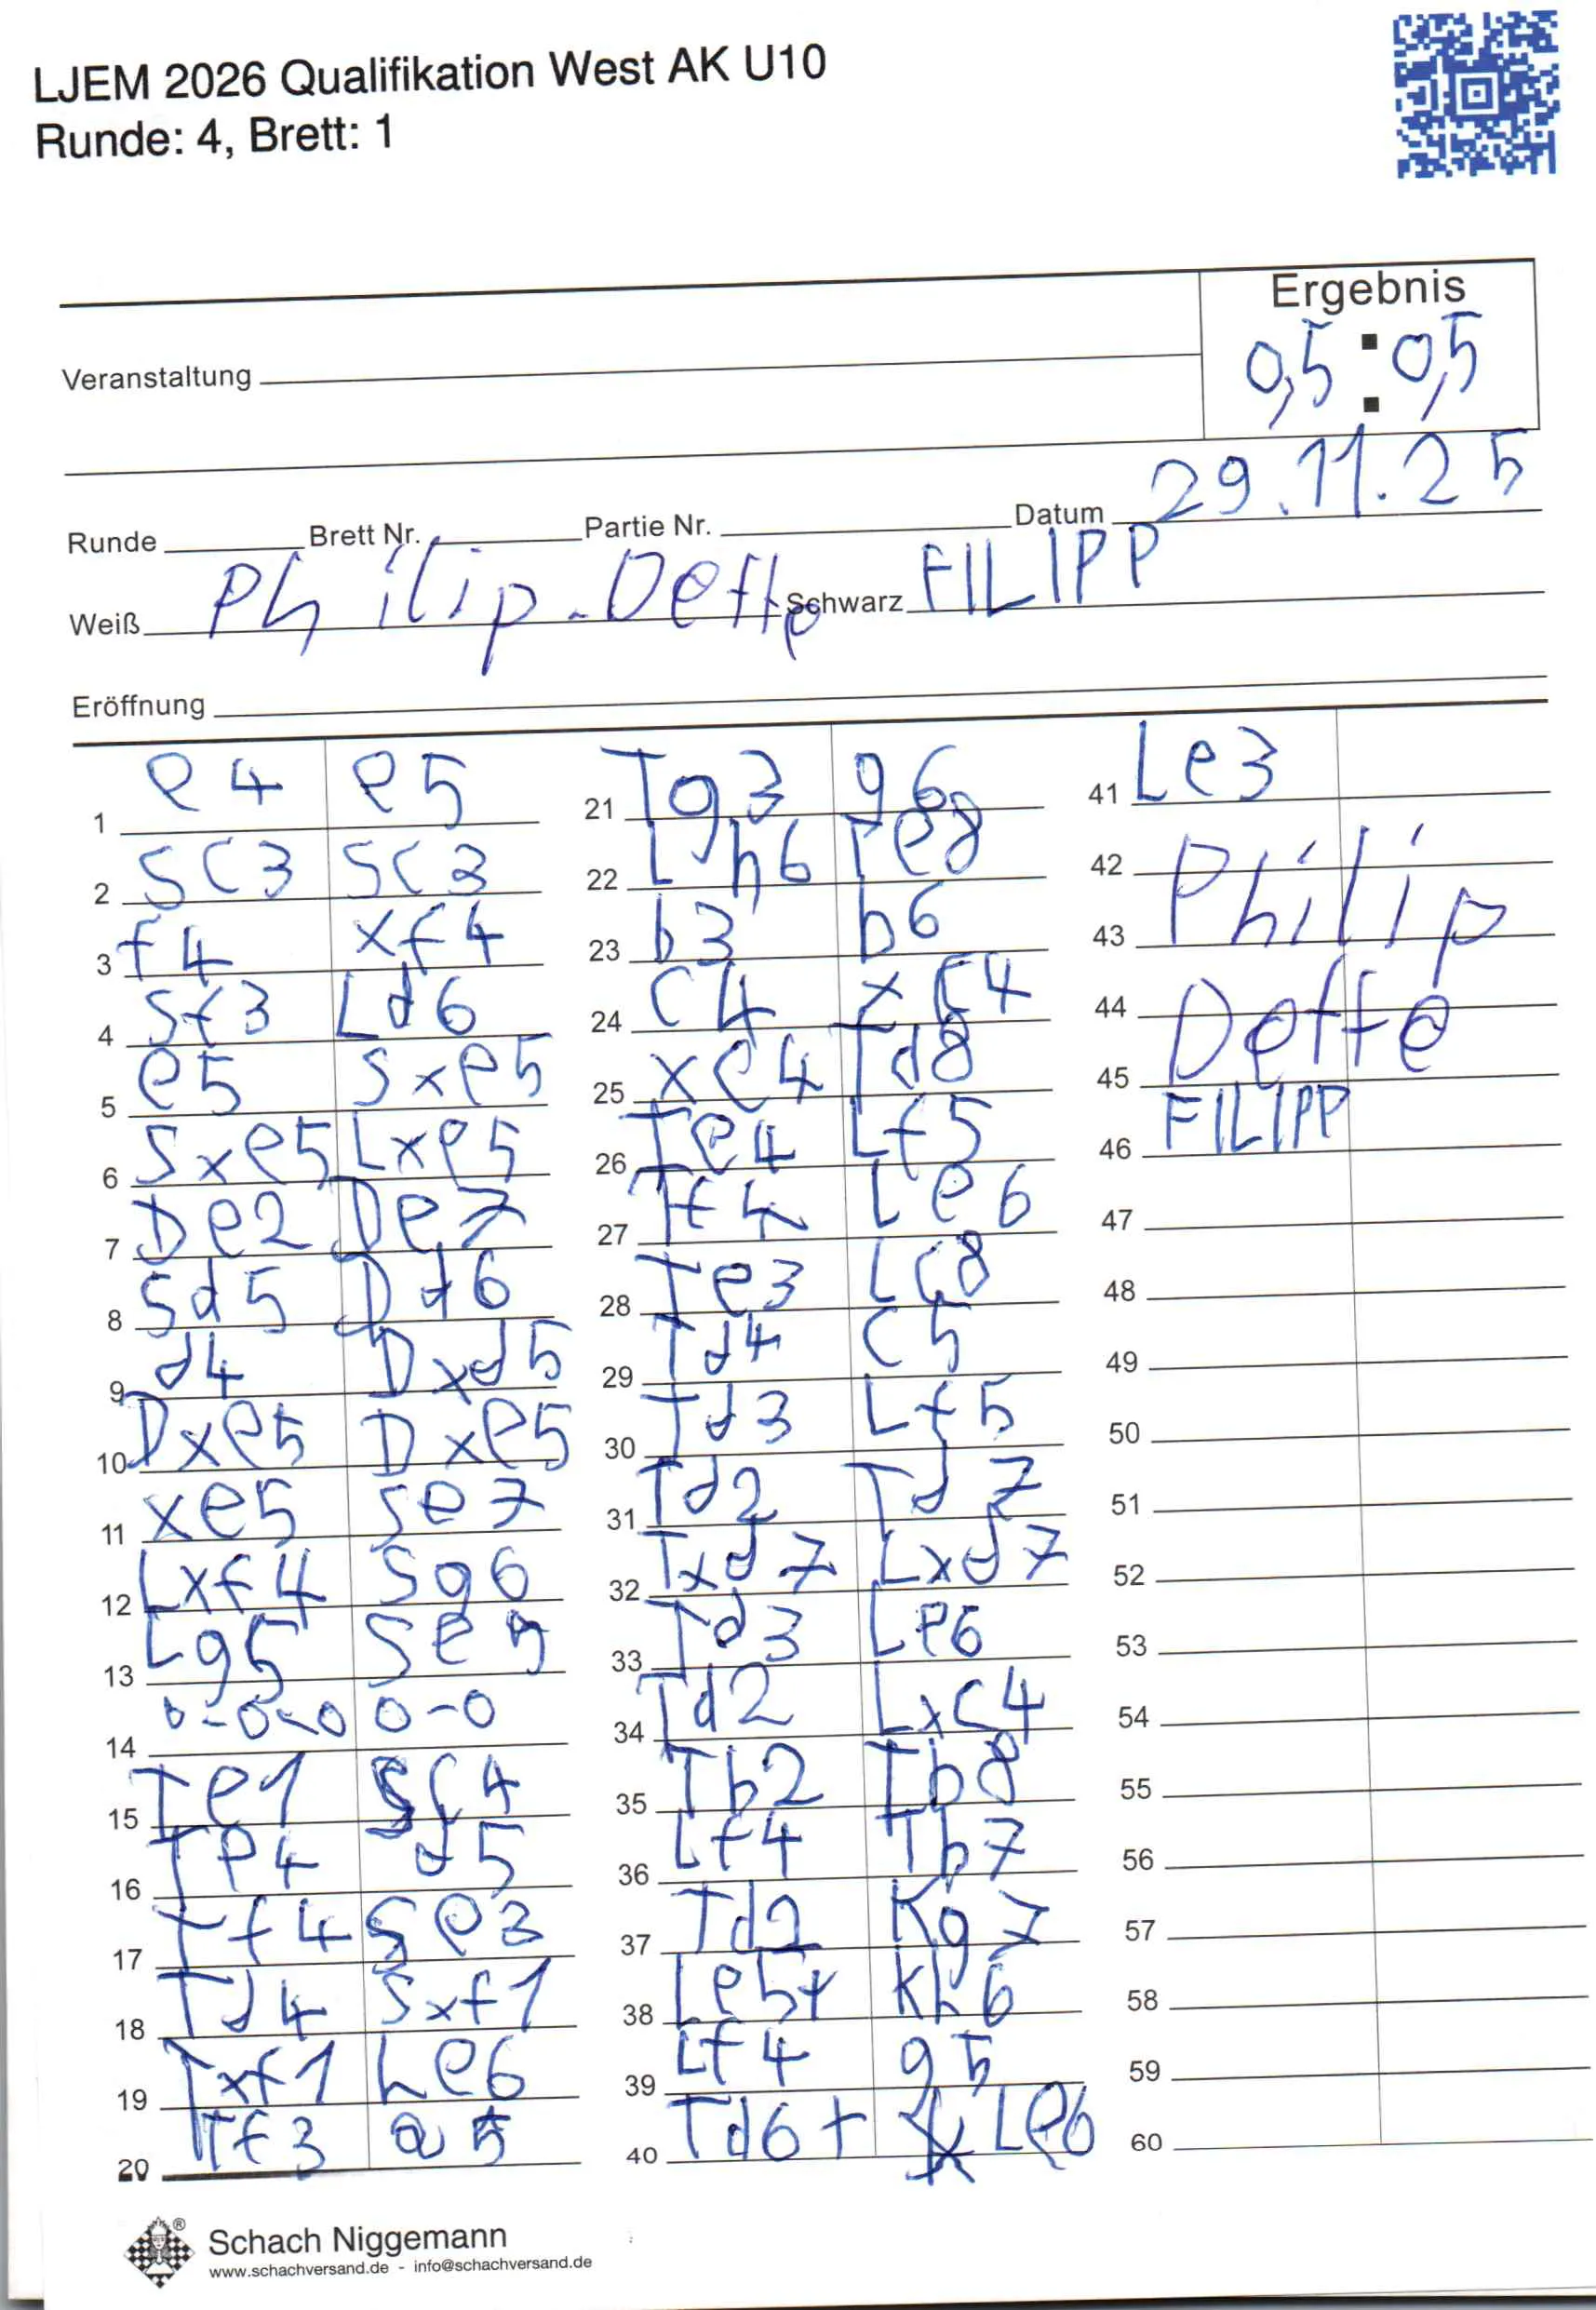 LJEM 2026 Qualifikation West AK U10
Runde: 4, Brett: 1
Ergebnis
0,5 : 0,5
Veranstaltung
Runde Brett Nr. Partie Nr. Datum 29.11.25
Weiß Philip-Deffe Schwarz FILIPP
Eröffnung
1 e4 e5
2 Sc3 Sc3
3 f4 xf4
4 Sf3 Ld6
5 e5 Sxe5
6 Sxe5 Lxe5
7 De2 De7
8 Sd5 Dd6
9 d4 Dxd5
10 Dxe5 Dxe5
11 xe5 Se7
12 Lxf4 Sg6
13 Lg5 Se5
14 0-0-0 0-0
15 Te1 Sc4
16 Te4 d5
17 Tf4 Se3
18 Td4 Sxf1
19 Txf1 Le6
20 Tf3 a5
21 Tg3 g6
22 Lh6 Te8
23 b3 b6
24 c4 xc4
25 xc4 Td8
26 Te4 Lf5
27 Tf4 Le6
28 Te3 Lc8
29 Td4 c5
30 Td3 Lf5
31 Td2 Td7
32 Txd7 Lxd7
33 Td3 Le6
34 Td2 Lxc4
35 Tb2 Tb8
36 Lf4 Tb7
37 Td2 Kg7
38 Le5+ Kh6
39 Lf4 g5
40 Td6+ Le6
41 Le3
42 Philip
43
44 Deffe
45
46 FILIPP
47
48
49
50
51
52
53
54
55
56
57
58
59
60
Schach Niggemann
www.schachversand.de - info@schachversand.de